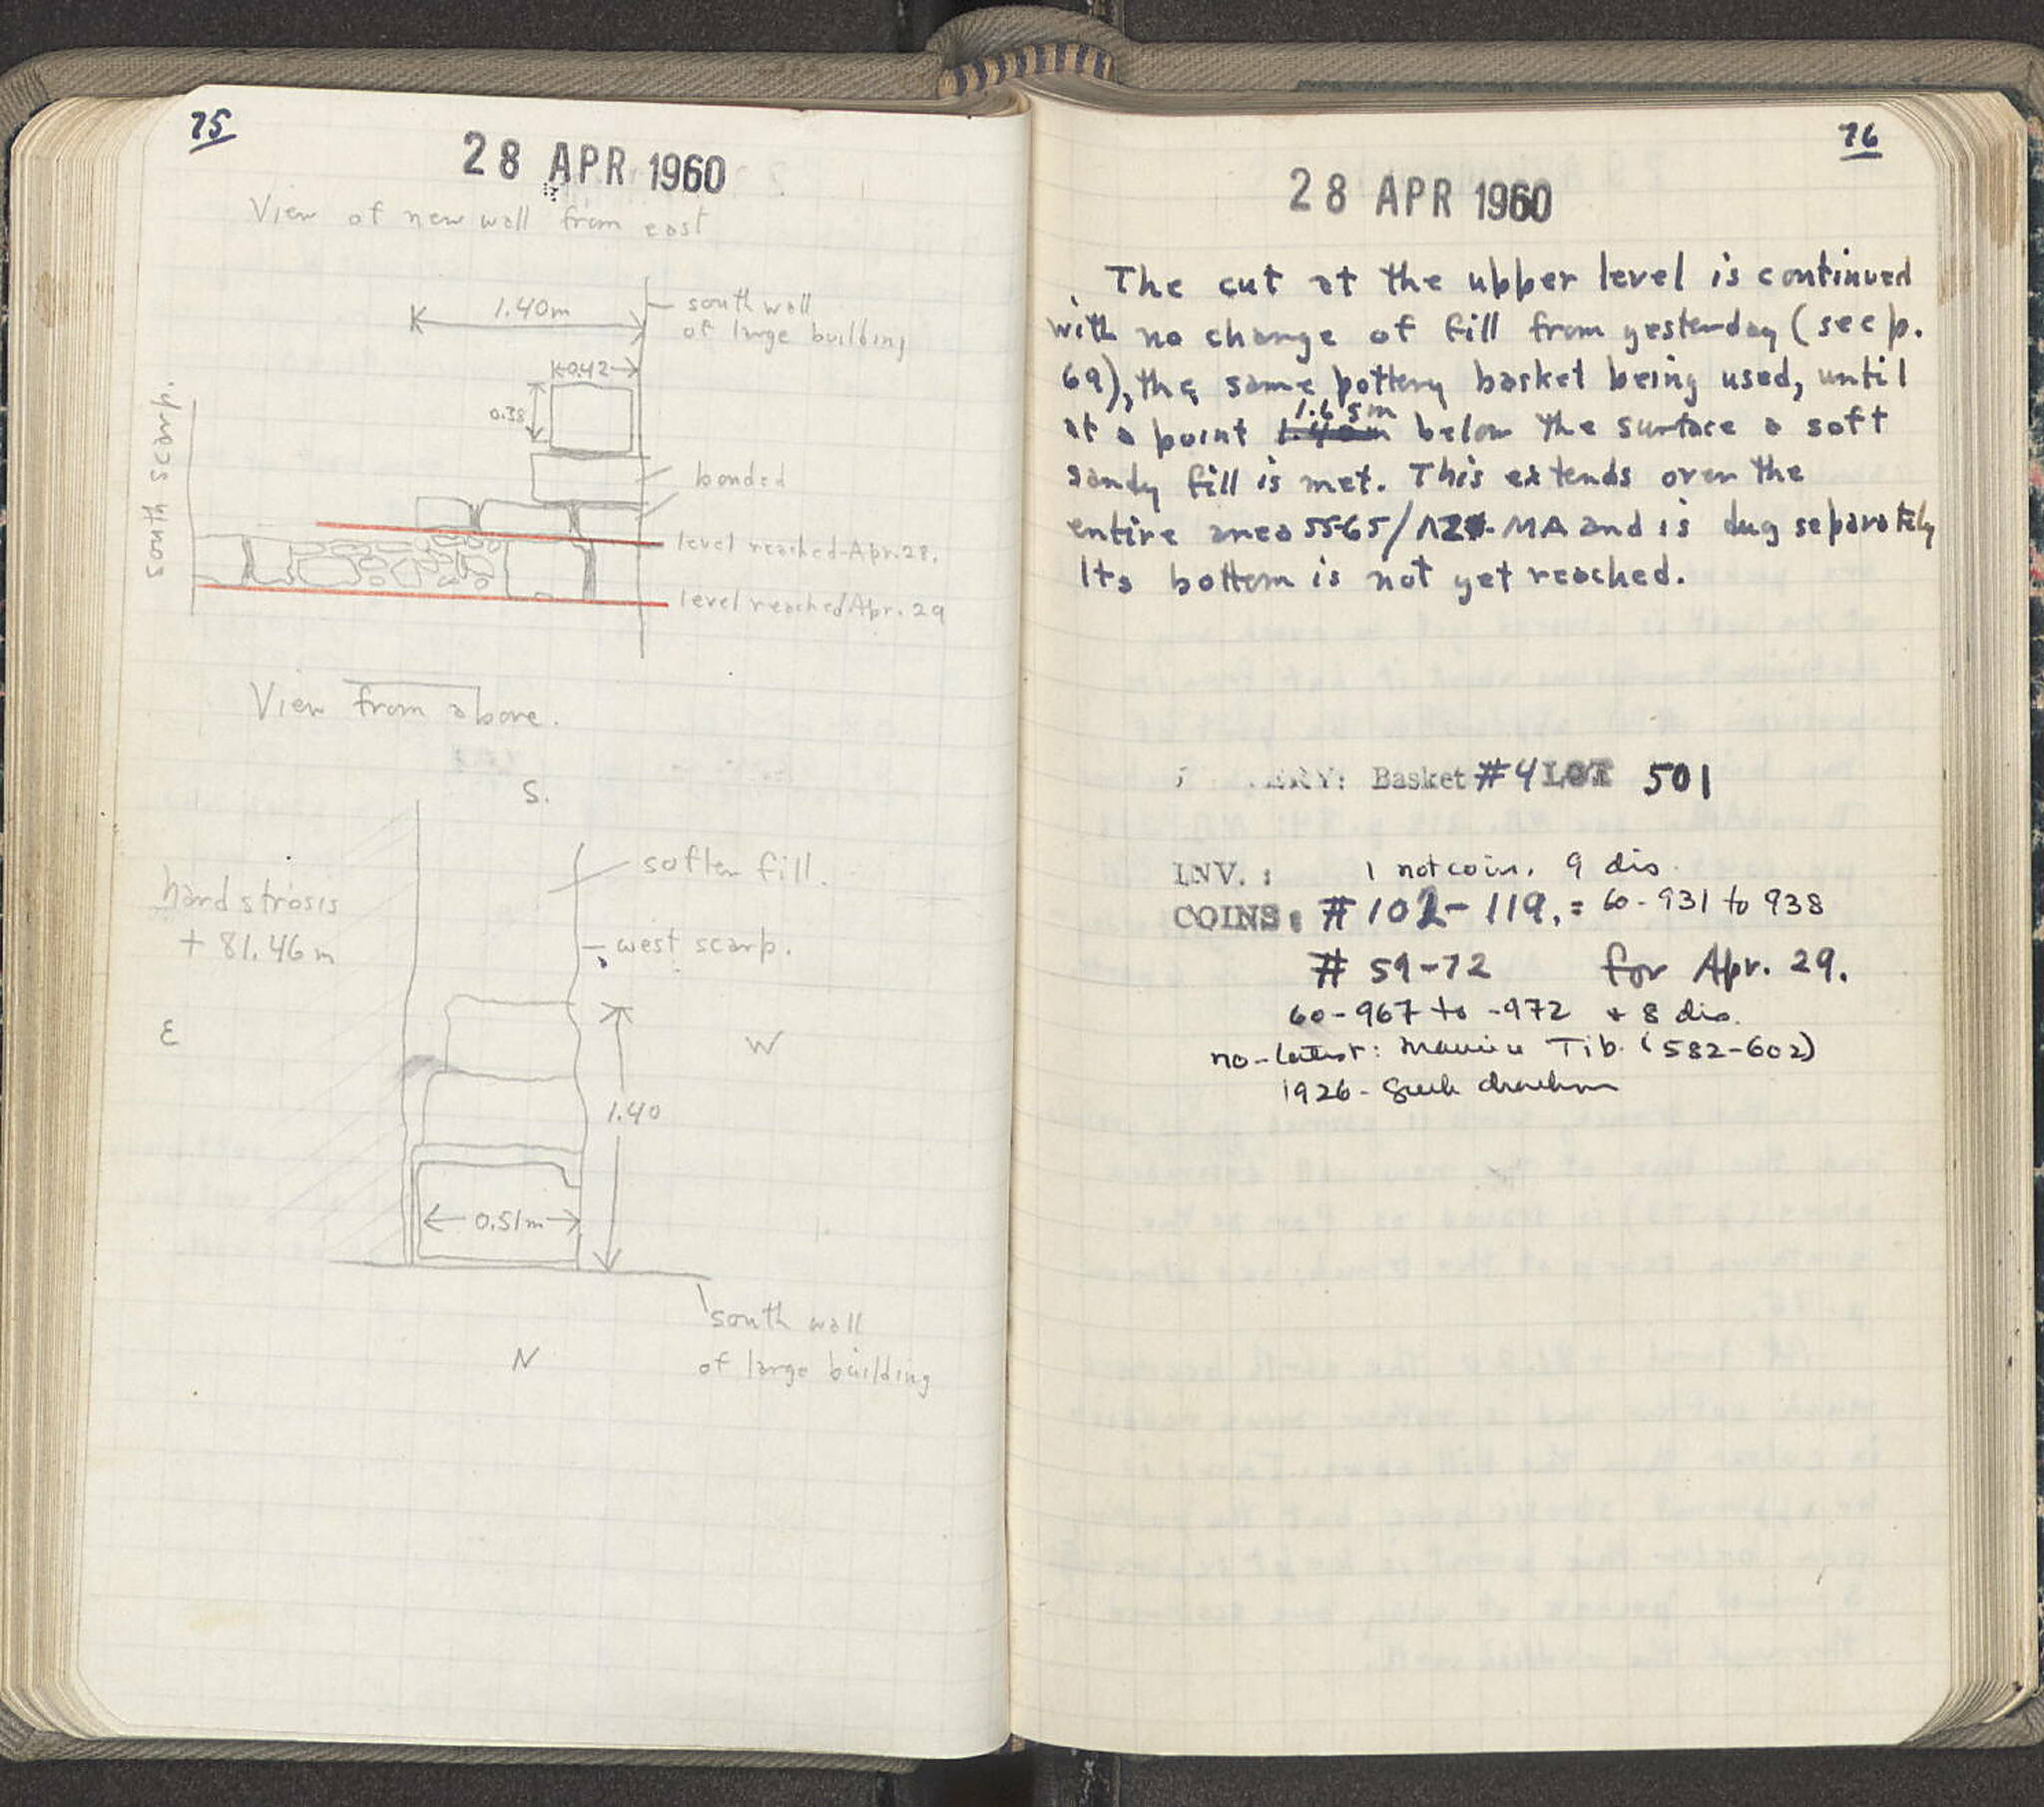 75
28 APR 1960
View of new wall from east
1.40m
south wall
of large building
0.42
0.38
bonded
south scarp.
level reached Apr. 28.
level reached Apr. 29
View from above.
S.
softer fill.
hard strosis
+ 81.46 m
west scarp.
E
W
1.40
0.51m
south wall
of large building
N
76
28 APR 1960
The cut at the upper level is continued
with no change of fill from yesterday (see p.
69), the same pottery basket being used, until
1.65m
at a point 1.40m below the surface a soft
sandy fill is met. This extends over the
entire area 55-65/ MA and is dug separately
Its bottom is not yet reached.
ERY: Basket #4 LOT 501
INV.: 1 not coin, 9 dis.
COINS: #102-119. = 60-931 to 938
# 59-72 for Apr. 29.
60-967 to -972 + 8 dis.
no-latest: Maurice Tib. (582-602)
1926 - Greek drachma